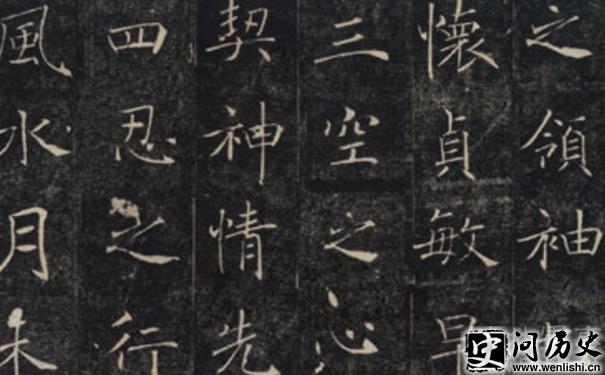 之領袖
懷貞敏早
三空之心
契神情先
四忍之行
風水月未
问历史
www.wenlishi.cn